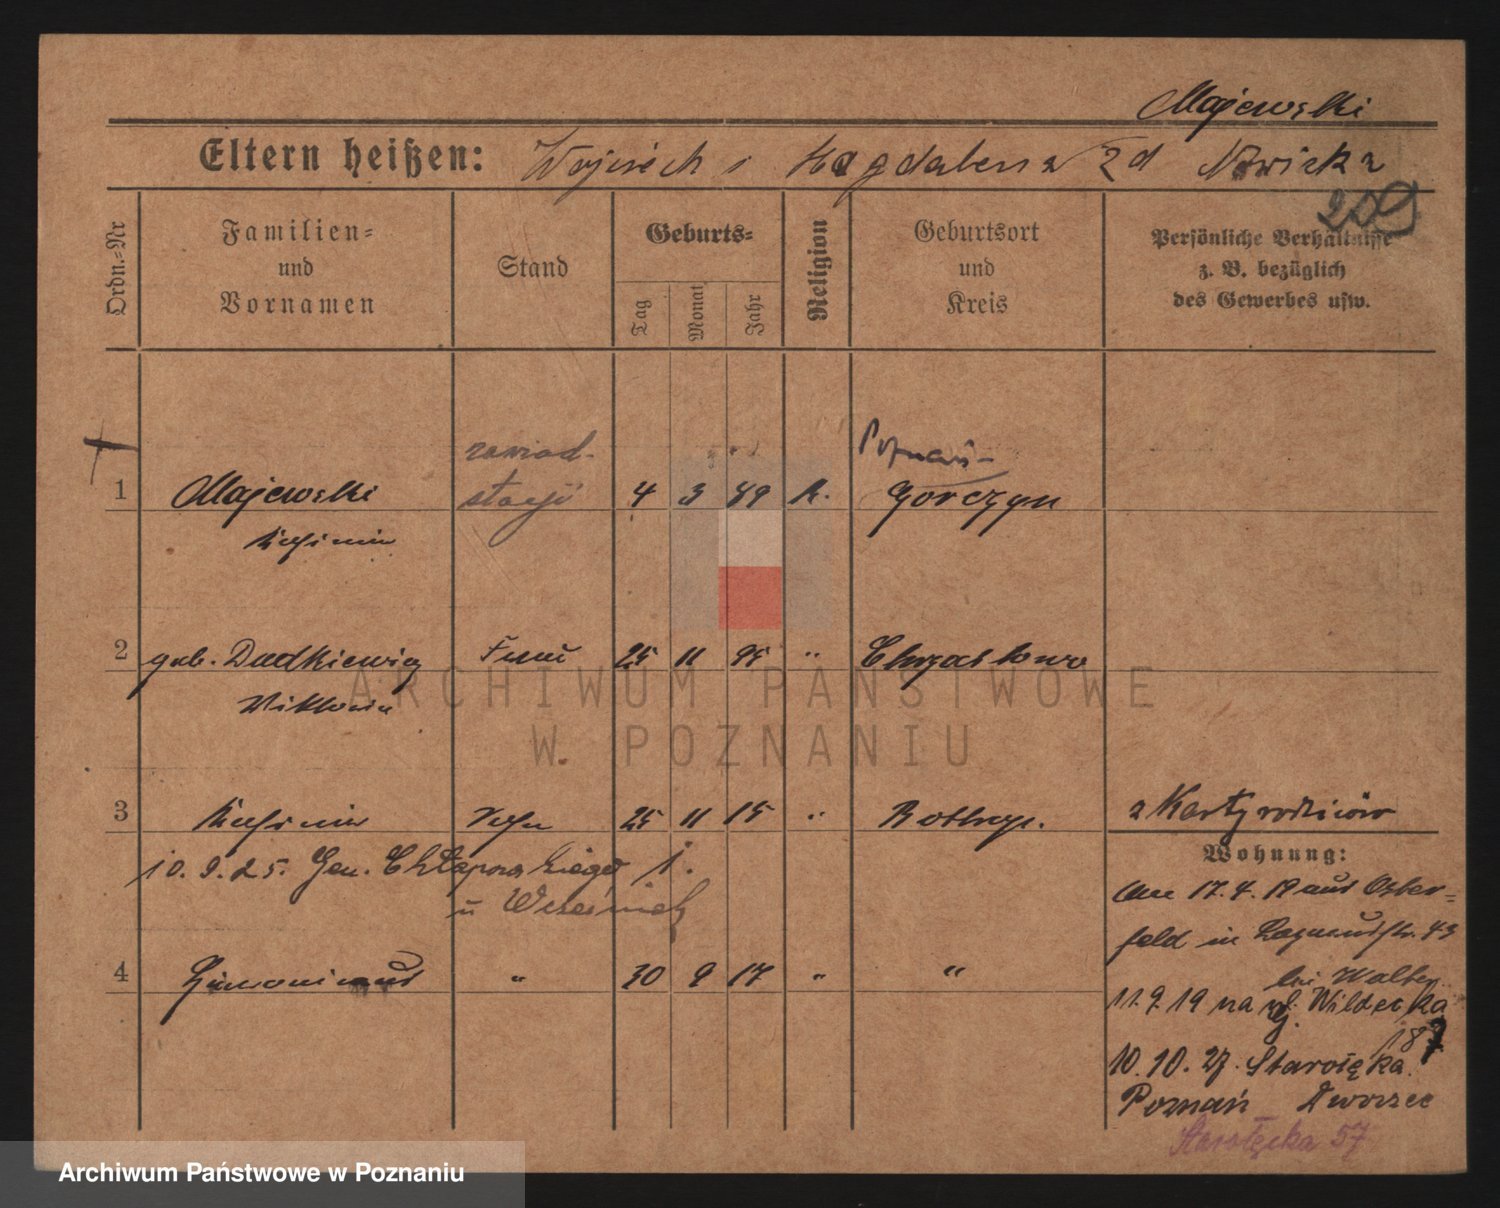 Majewski
Eltern heißen: Wojciech i Magdalena zd Nowicka
209
Ordn.=Nr
Familien=
und
Vornamen
Stand
Geburts=
Tag
Monat
Jahr
Religion
Geburtsort
und
Kreis
Persönliche Verhältnisse
z. B. bezüglich
des Gewerbes usw.
zawiad-
Poznań-
1 Majewski stacji 4 3 89 K. Górczyn
Kasimir
2 geb. Dudkiewicz Frau 25 11 95 "
Wiktoria
3 Kasimir Sohn 25 11 15 " Bottrop. z Karty rodziców
10. 9. 25. Gen. Chłapowskiego
Wohnung:
Am 17.4.19 aus Oster=
feld in
4 " 30 9 17 " "
bei Walter
11.9.19 na Wildecka
18
10.10.27. Starołęka
Poznań Dworzec
Starołęcka 57
ARCHIWUM PAŃSTWOWE
W POZNANIU
Archiwum Państwowe w Poznaniu